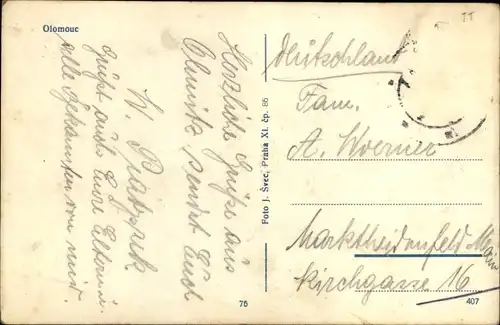 Olomouc
Herzliche Grüße aus
Olmütz sendet Euch
W.
Grüßt auch Eure Eltern u.
alle Bekannten von mir.
Foto J. Švec, Praha XI. čp. 86
Deutschland
Fam.
A. Woerner
Marktheidenfeld Main
Kirchgasse 16
76
407